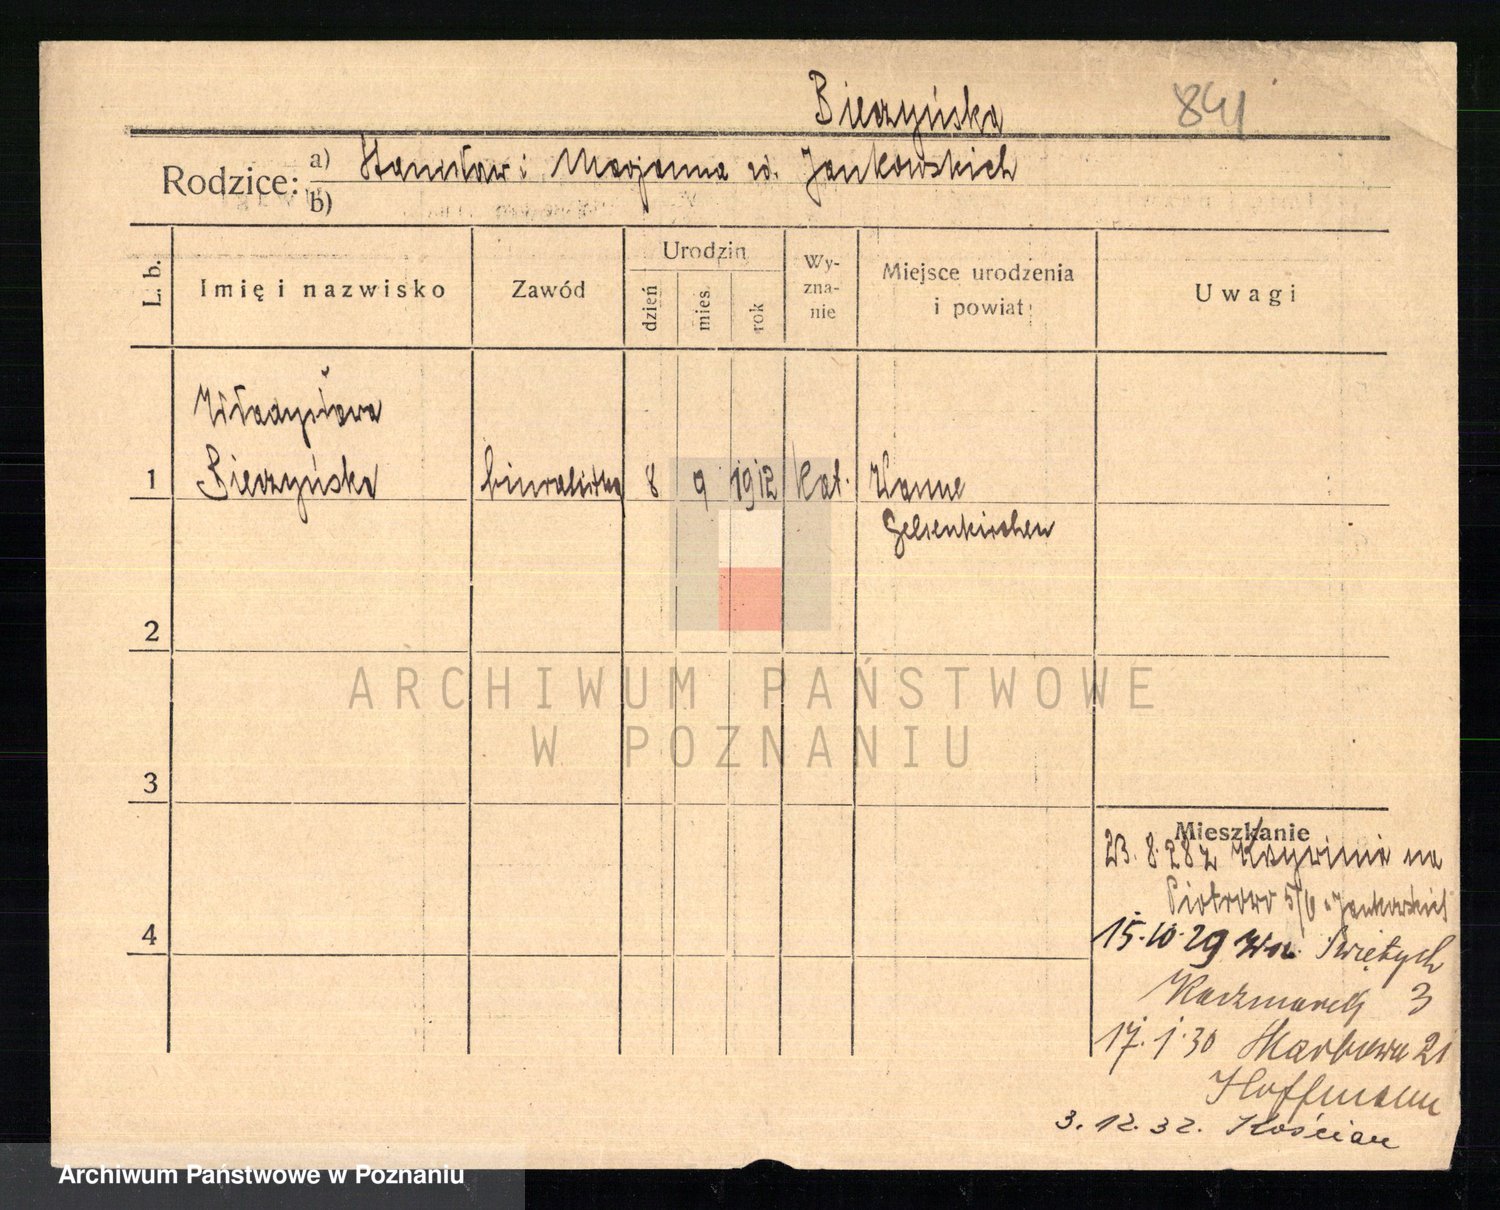 Bierzyńska
841
Rodzice: a) Stanisław i Marjanna zd. Jankowskich
b)
L. b.
Imię i nazwisko
Zawód
Urodzin
dzień
mies.
rok
Wy-
zna-
nie
Miejsce urodzenia
i powiat
Uwagi
Władysława
1 Bierzyńska biuralistka 8 9 1912 kat. Wanne
Gelsenkirchen
2
3
4
ARCHIWUM PAŃSTWOWE
W POZNANIU
Mieszkanie
23. 8. 28 z Krzywinia na
Piotrowo 5/6 Jankowskich
15. 10. 29 Ws. Świętych
Kaczmarek 3
17. 1. 30 Skarbowa 21
Hoffmann
3. 12. 32. Kościan
Archiwum Państwowe w Poznaniu